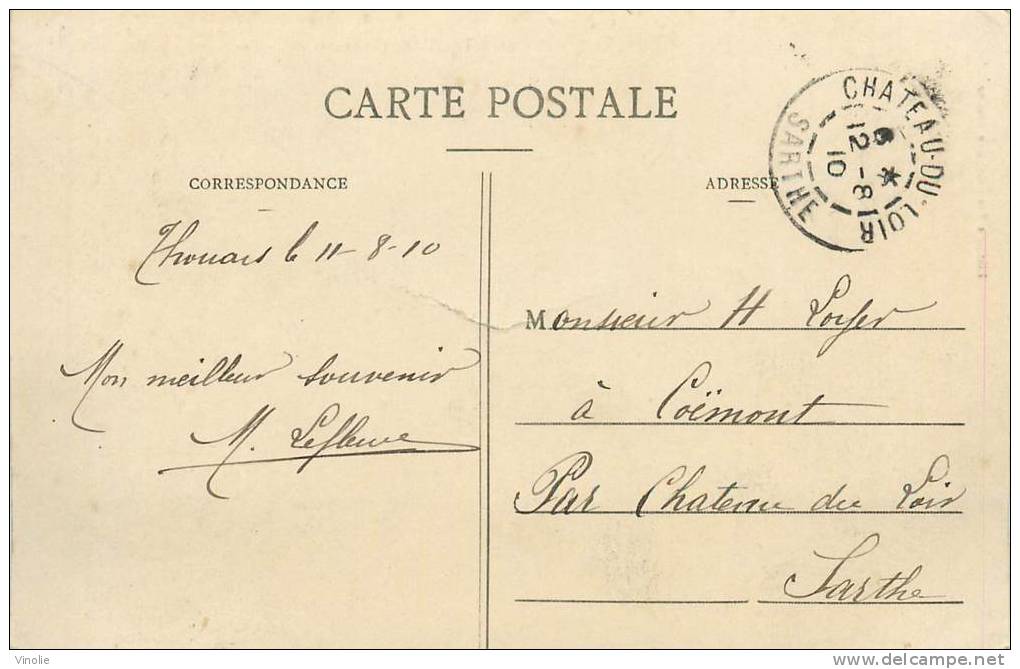 CARTE POSTALE
CORRESPONDANCE
ADRESSE
CHATEAU-DU-LOIR
SARTHE
12 -8
10
Thouars le 11-8-10
Mon meilleur souvenir
M.
Monsieur H Loyer
à Coëmont
Par Chateau du Loir
Sarthe
Vinolie
www.delcampe.net